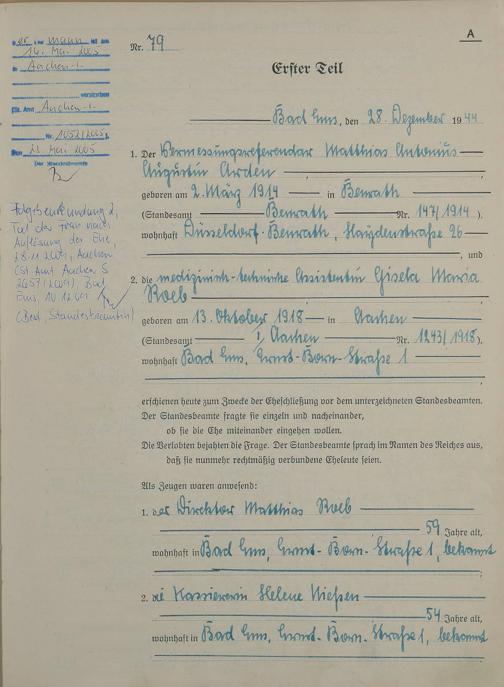 A
Nr. 79
Erster Teil
Bad Ems, den 28. Dezember 1944
1. Der Vermessungsreferendar Matthias Antonius
Augustin Arden
geboren am 2. März 1914 in Benrath
(Standesamt Benrath Nr. 147/1914).
wohnhaft Düsseldorf-Benrath, Haydenstraße 26
, und
2. die medizinisch-technische Assistentin Gisela Maria
Roeb
geboren am 13. Oktober 1918 in Aachen
(Standesamt I, Aachen Nr. 1243/1918).
wohnhaft Bad Ems, Ernst-Born-Straße 1
erschienen heute zum Zwecke der Eheschließung vor dem unterzeichneten Standesbeamten.
Der Standesbeamte fragte sie einzeln und nacheinander,
ob sie die Ehe miteinander eingehen wollen.
Die Verlobten bejahten die Frage. Der Standesbeamte sprach im Namen des Reiches aus,
daß sie nunmehr rechtmäßig verbundene Eheleute seien.
Als Zeugen waren anwesend:
1. der Direktor Matthias Roeb
59 Jahre alt,
wohnhaft in Bad Ems, Ernst-Born-Straße 1, bekannt
2. die Kassiererin Helene Nießen
54 Jahre alt,
wohnhaft in Bad Ems, Ernst-Born-Straße 1, bekannt
Der Ehemann ist am
14. Mai 2005
in Aachen
verstorben
St. Amt Aachen
Nr. 1052/2005
Den 23. Mai 2005
Der Standesbeamte
Folgebeurkundung 2,
Tod der Frau nach
Auflösung der Ehe,
28.11.2009, Aachen
(St. Amt Aachen S
2657/2009), Bad
Ems, 10.12.09
(Beal, Standesbeamtin)